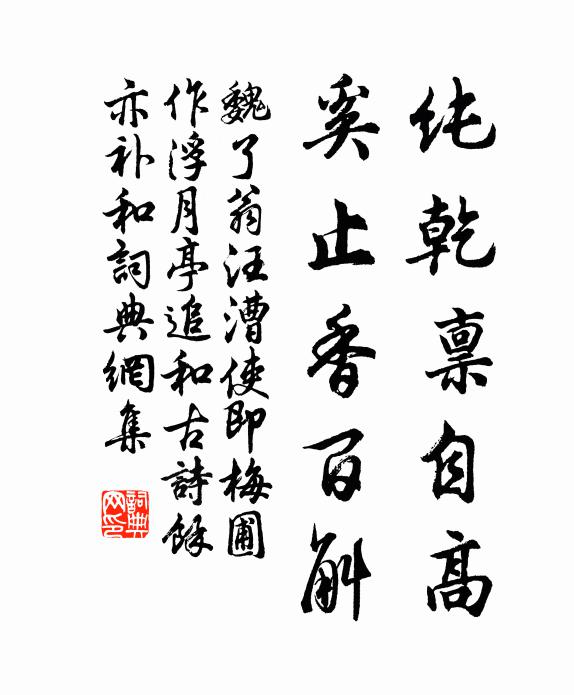 纯乾禀自高
奚止香百斛
魏了翁汪漕使即梅圃
作浮月亭追和古詩餘
亦补和詞典網集
詞典
网印